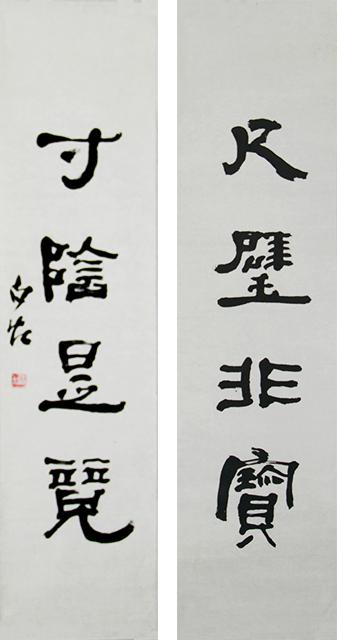 尺璧非寶
寸陰是競